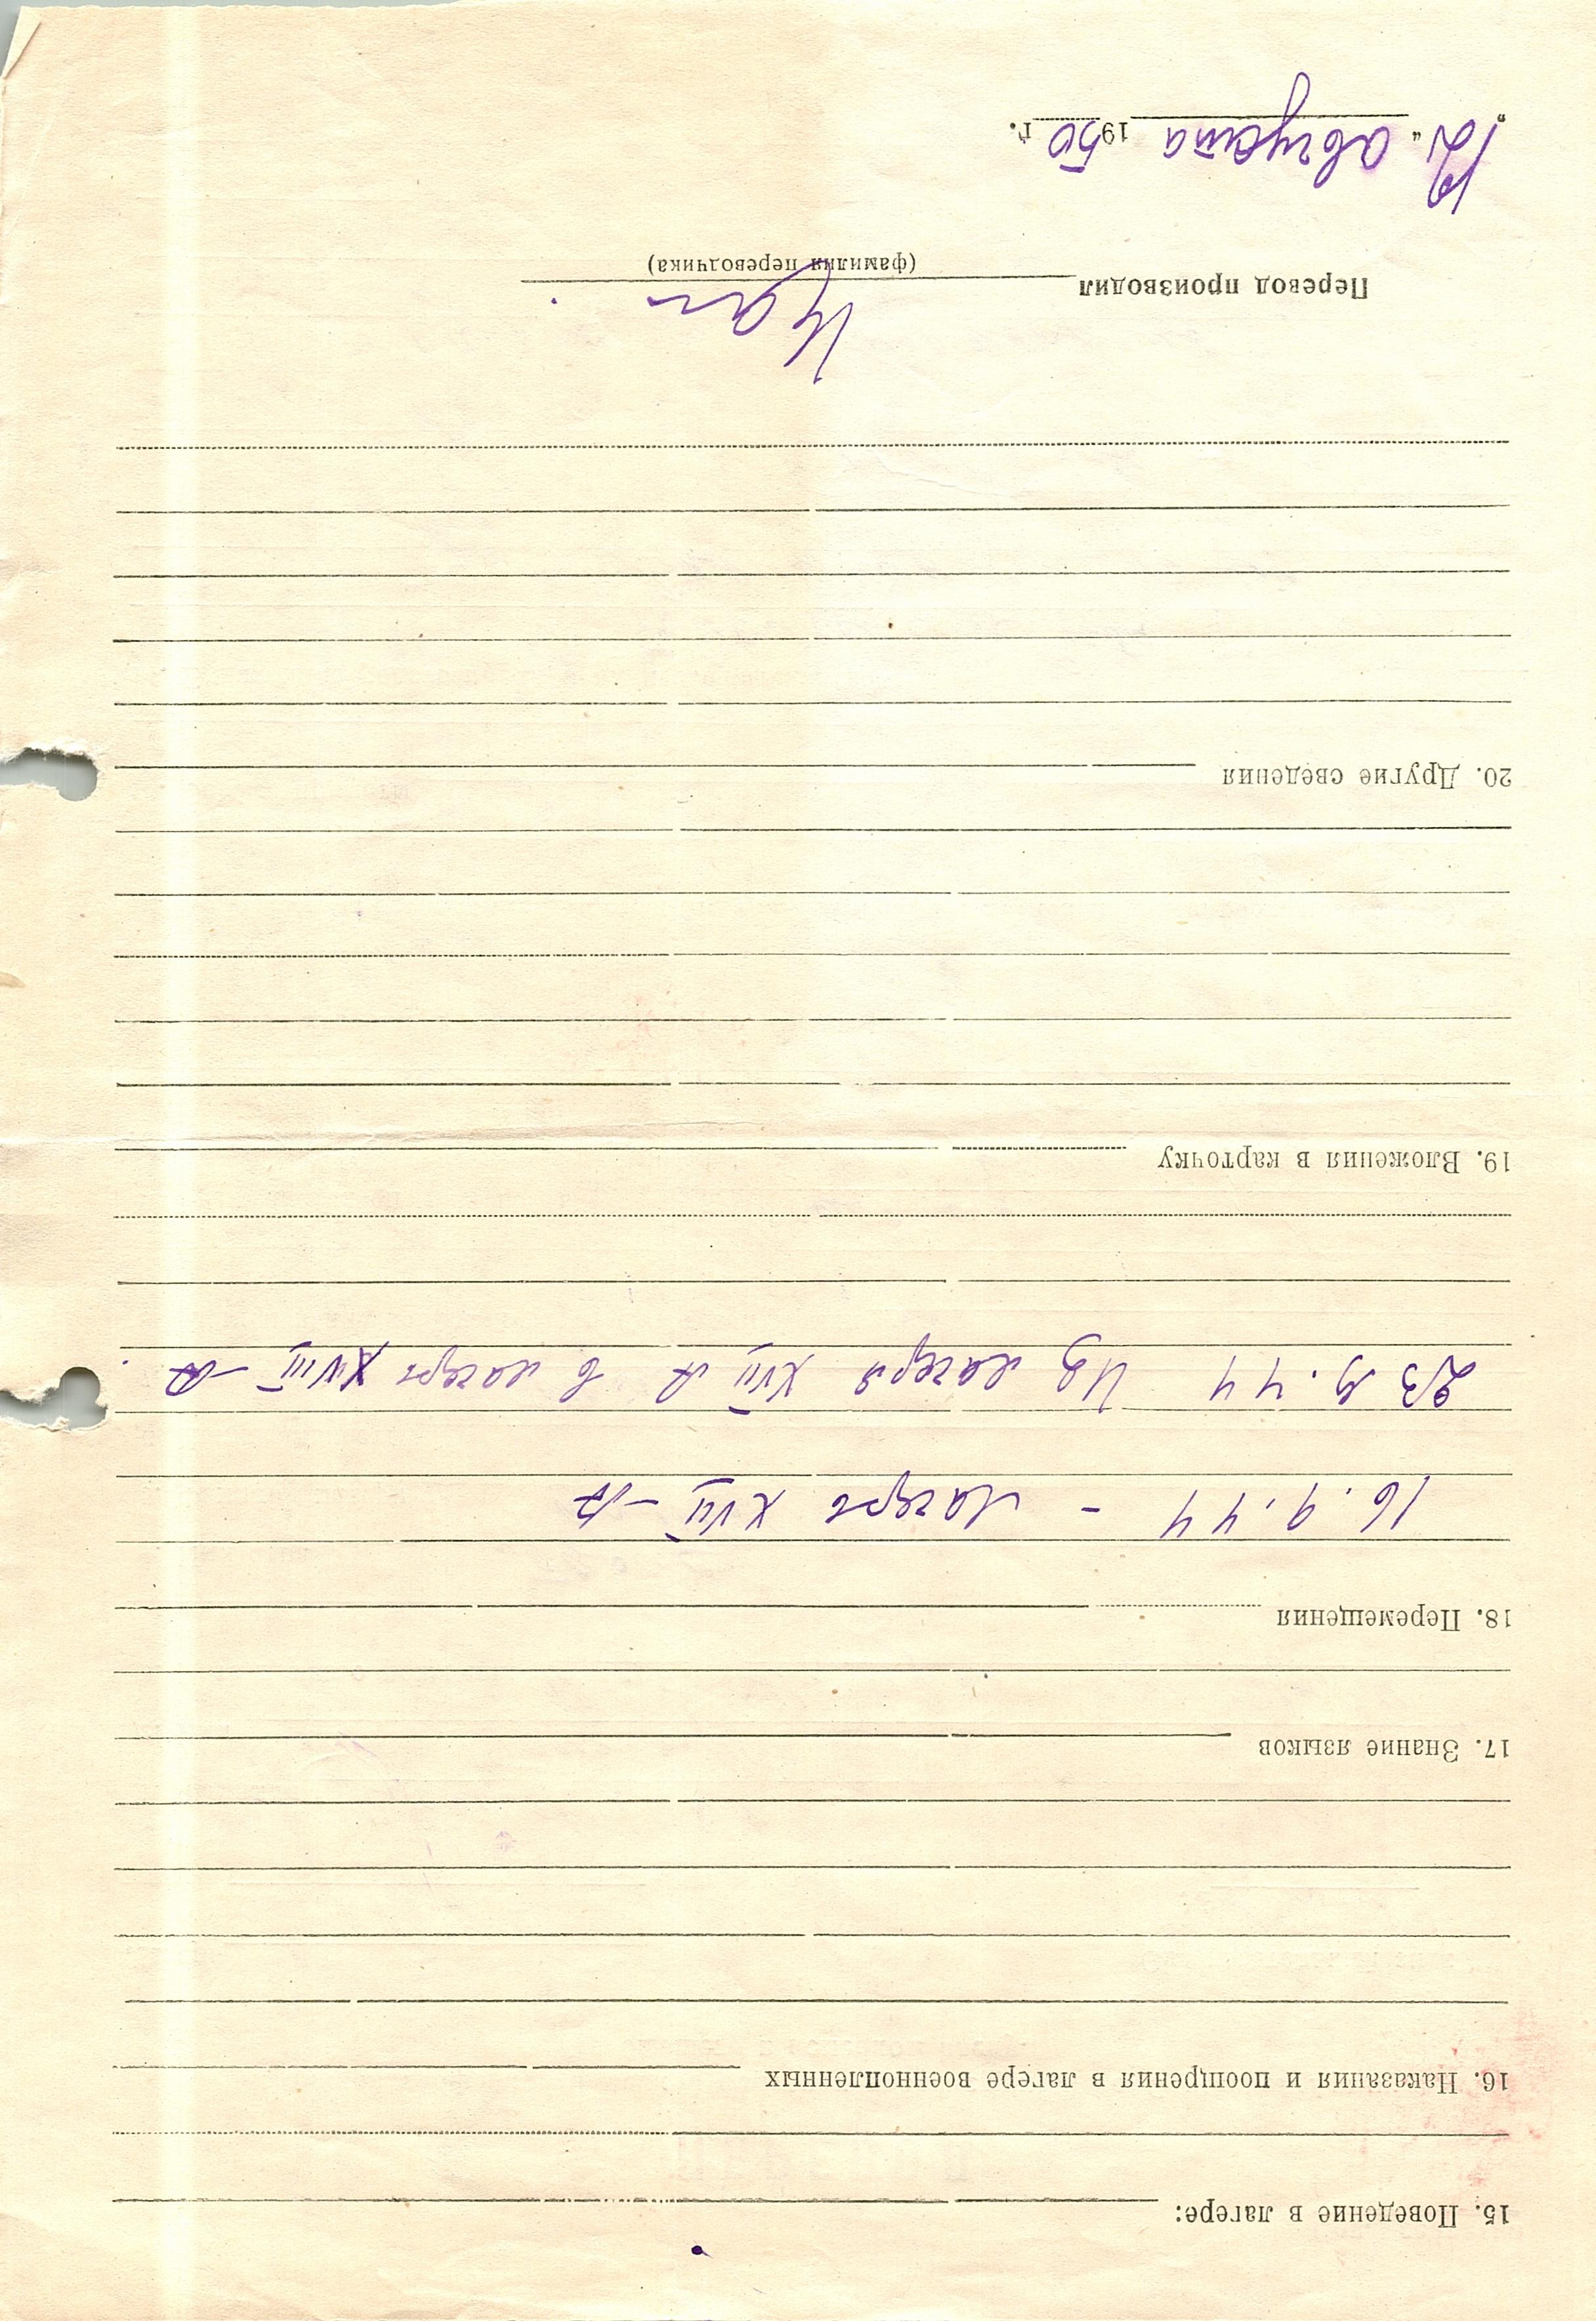 15. Поведение в лагере:
16. Наказания и поощрения в лагере военнопленных
17. Знание языков
18. Перемещения
16.9.44 - лагерь XVII - А
23.9.44 Из лагеря XVII А в лагерь XVIII - А.
19. Вложения в карточку
20. Другие сведения
Перевод производил
(фамилия переводчика)
„12“ августа 1950 г.